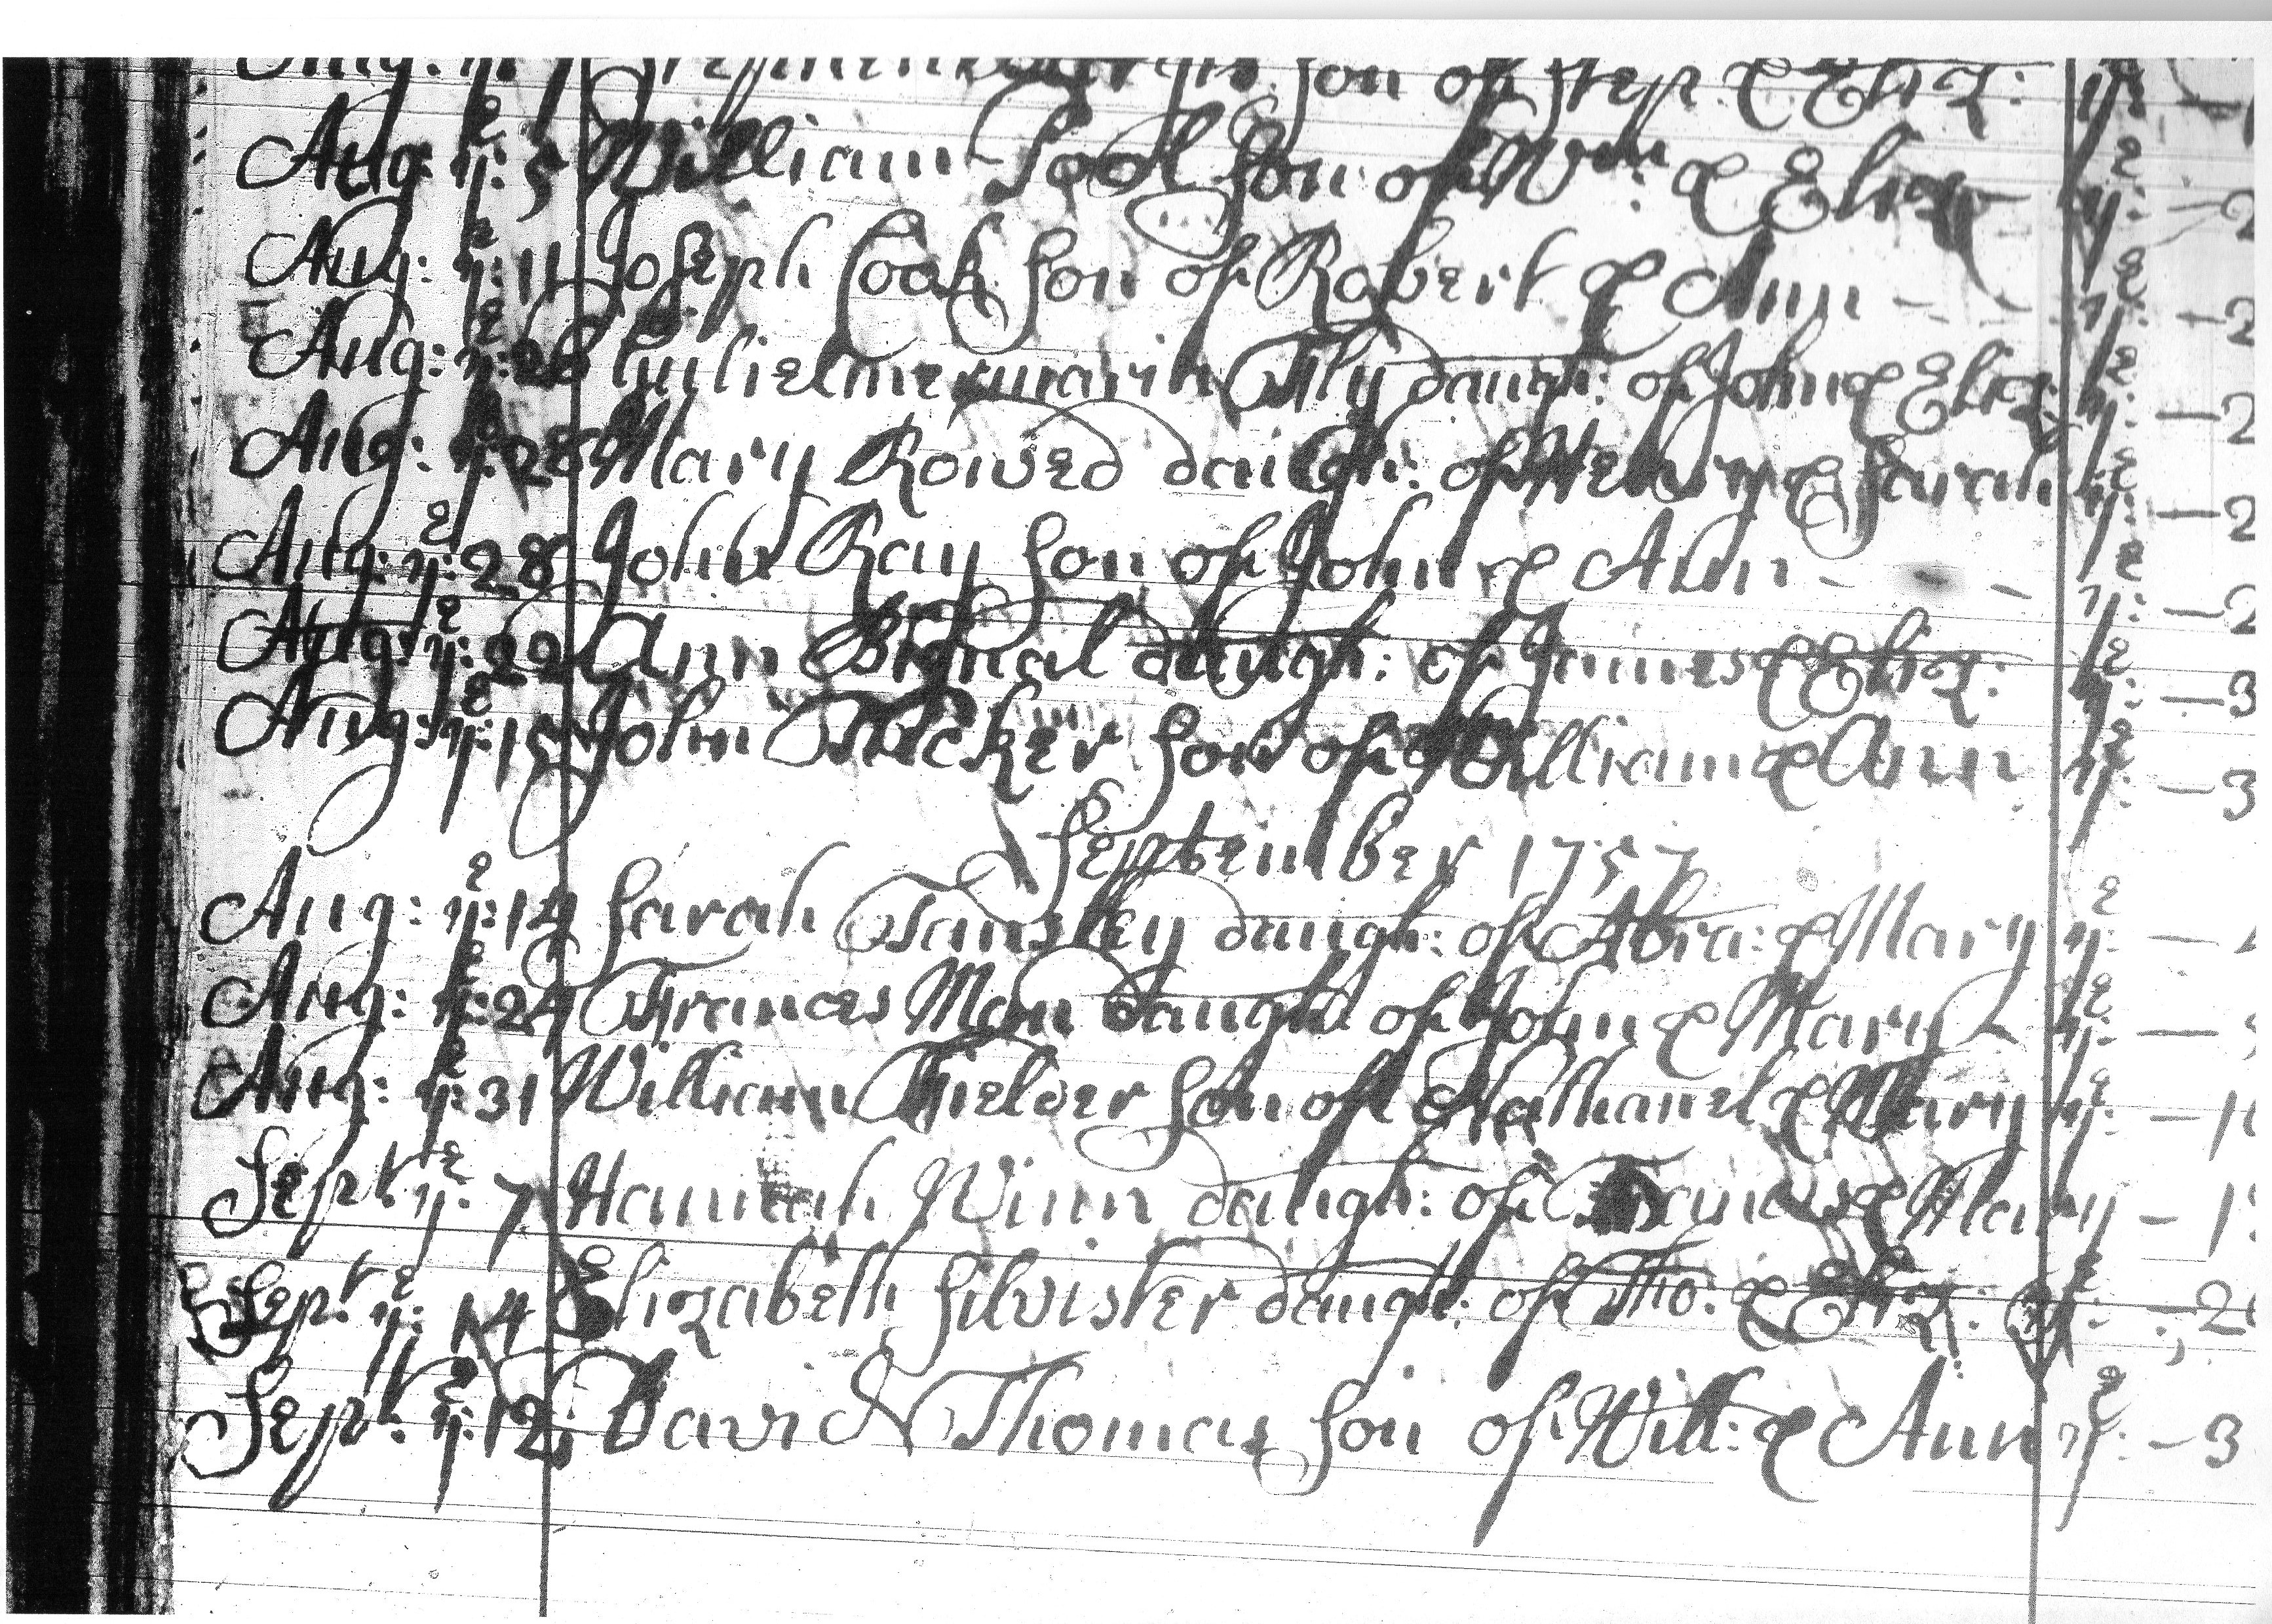 son of Step. & Eliz: ye
Aug: ye: 5 William Pool son of Wm: & Eliz ye: - 2
Aug: ye: 11 Joseph Cook son of Robert & Ann - - - ye: - 2
Aug: ye: 26 daugh: of John & Eliz: ye: - 2
Aug: ye: 28 Mary Rowed daugh: of Henry & Sarah ye: - 2
Aug: ye: 28 John Ray son of John & Ann - - ye: - 2
Aug: ye: 22 Ann Bignal daugh: of James & Eliz: ye: - 3
Aug: ye: 15 John Tucker son of William & Ann ye: - 3
September 1757
Aug: ye: 14 Sarah Tansley daugh: of Abra: & Mary ye: -
Aug: ye: 24 Frances Man daugh: of John & Mary ye: -
Aug: ye: 31 William Fielder son of Nathanel & Mary ye: - 1
Sept: ye: 7 Hannah Winn daugh: of & Mary - 1
Sept: ye: 14 Elizabeth Silvister daugh: of Tho: & Eliz: ye: - 2
Sept: ye: 12 David Thomas son of Will: & Ann ye: - 3